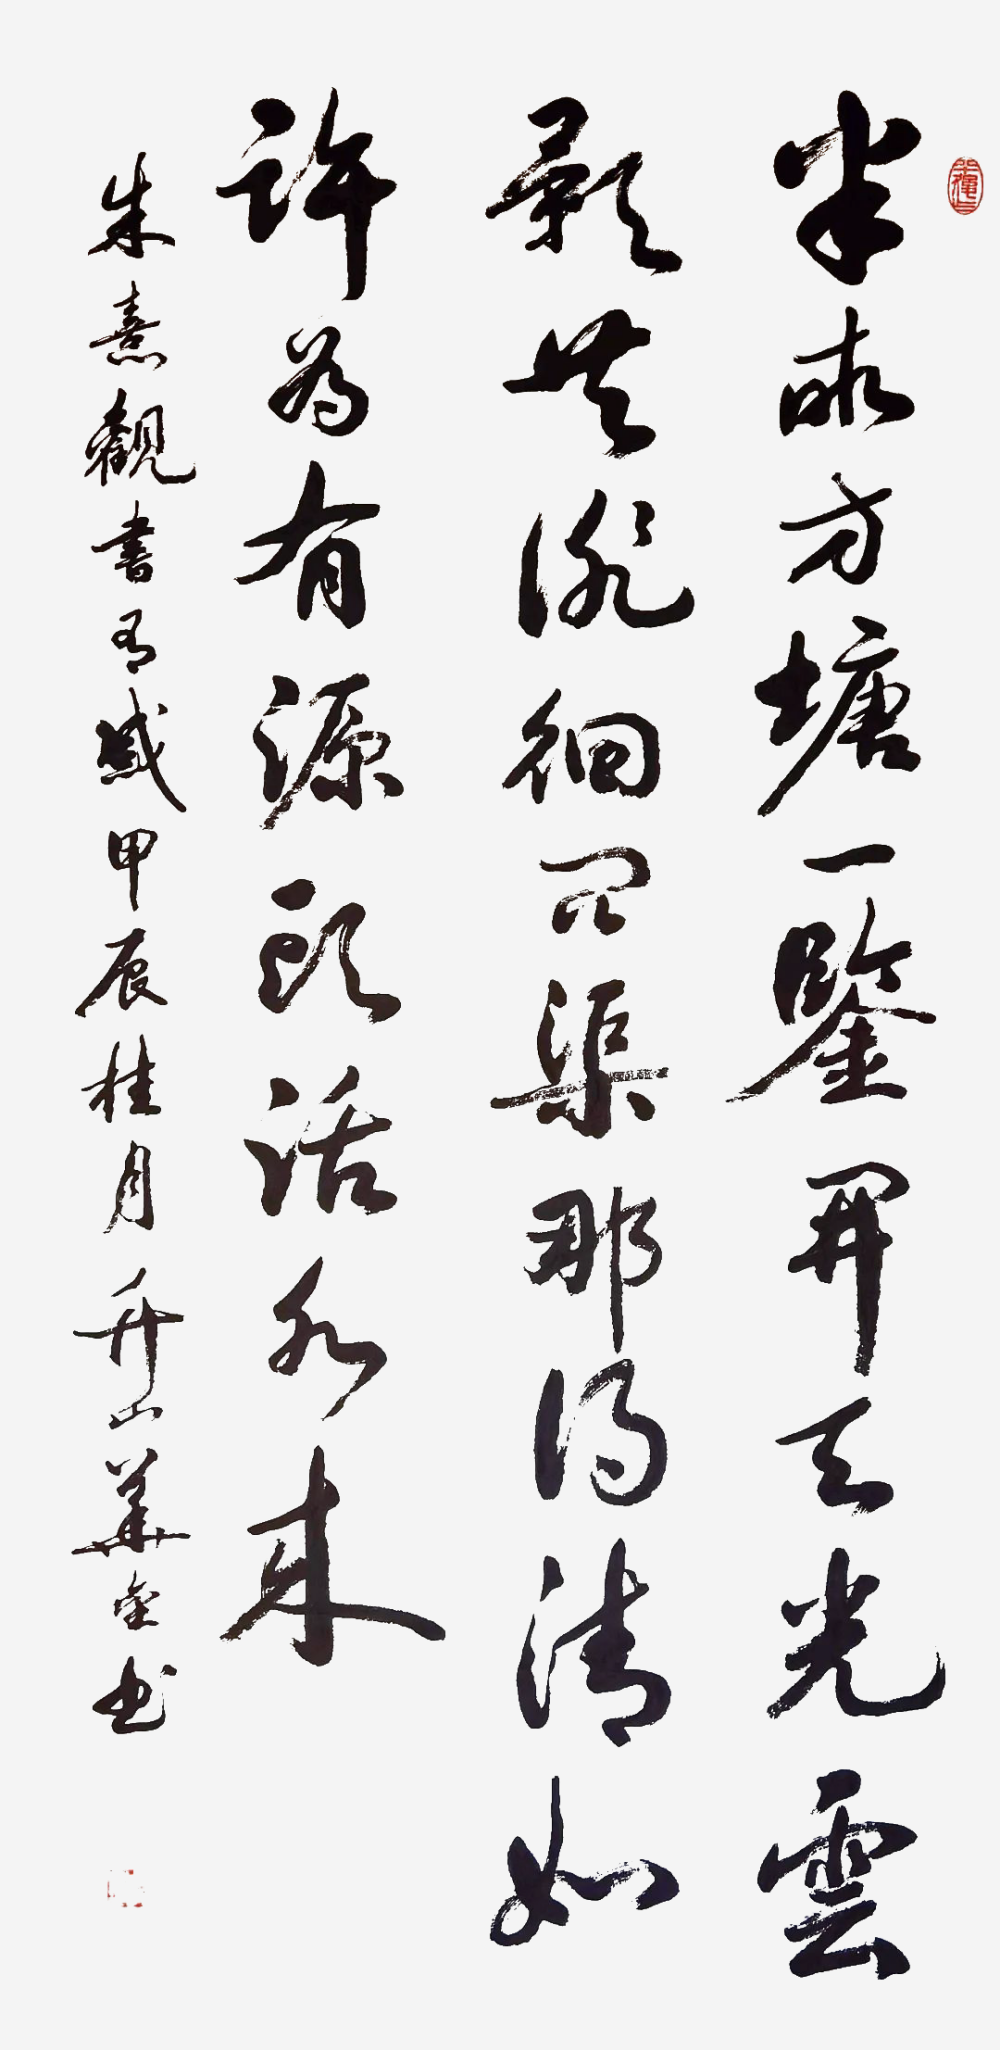 半畝方塘一鑒開天光雲
影共徘徊問渠那得清如
許為有源頭活水來
朱熹觀書有感甲辰桂月升山華金书